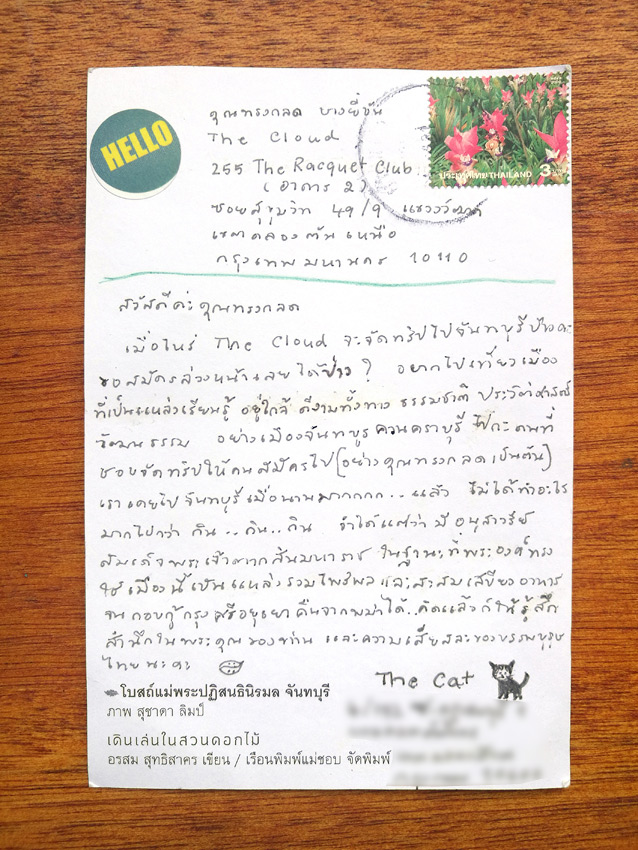 HELLO
คุณทรงกลด บางยี่ขัน
The Cloud
255 The Racquet Club
(อาคาร 2)
ซอยสุขุมวิท 49/9 แขวง
เขตคลองตันเหนือ
กรุงเทพมหานคร 10110
ประเทศไทย THAILAND 3
สวัสดีค่ะคุณทรงกลด
เมื่อไหร่ The Cloud จะจัดทริปไปจันทบุรีบ้างคะ
ขอสมัครล่วงหน้าเลยได้ป่าว? อยากไปเที่ยวเมือง
ที่เป็นแหล่งเรียนรู้ อยู่ใกล้ ดีงามทั้งทาง ธรรมชาติ ประวัติศาสตร์
วัฒนธรรม อย่างเมืองจันทบูร ควนคราบุรี คนที่
ชอบจัดทริปให้คนสมัครไป (อย่างคุณทรงกลดเป็นต้น)
เราเคยไปจันทบุรีเมื่อนานมากกกก.. แล้ว ไม่ได้ทำอะไร
มากไปกว่า กิน..กิน..กิน จำได้แต่ว่า มีอนุสาวรีย์
สมเด็จพระเจ้าตากสินมหาราช ในฐานะที่พระองค์ทรง
ใช้เมืองนี้เป็นแหล่งรวมไพร่พล และสะสมเสบียงอาหาร
จนกอบกู้กรุงศรีอยุธยาคืนจากพม่าได้..คิดแล้วก็ให้รู้สึก
สำนึกในพระคุณของท่าน และความเสียสละของบรรพบุรุษ
ไทยนะคะ
The Cat
โบสถ์แม่พระปฏิสนธินิรมล จันทบุรี
ภาพ สุชาดา ลิมป์
เดินเล่นในสวนดอกไม้
อรสม สุทธิสาคร เขียน / เรือนพิมพ์แม่ชอบ จัดพิมพ์